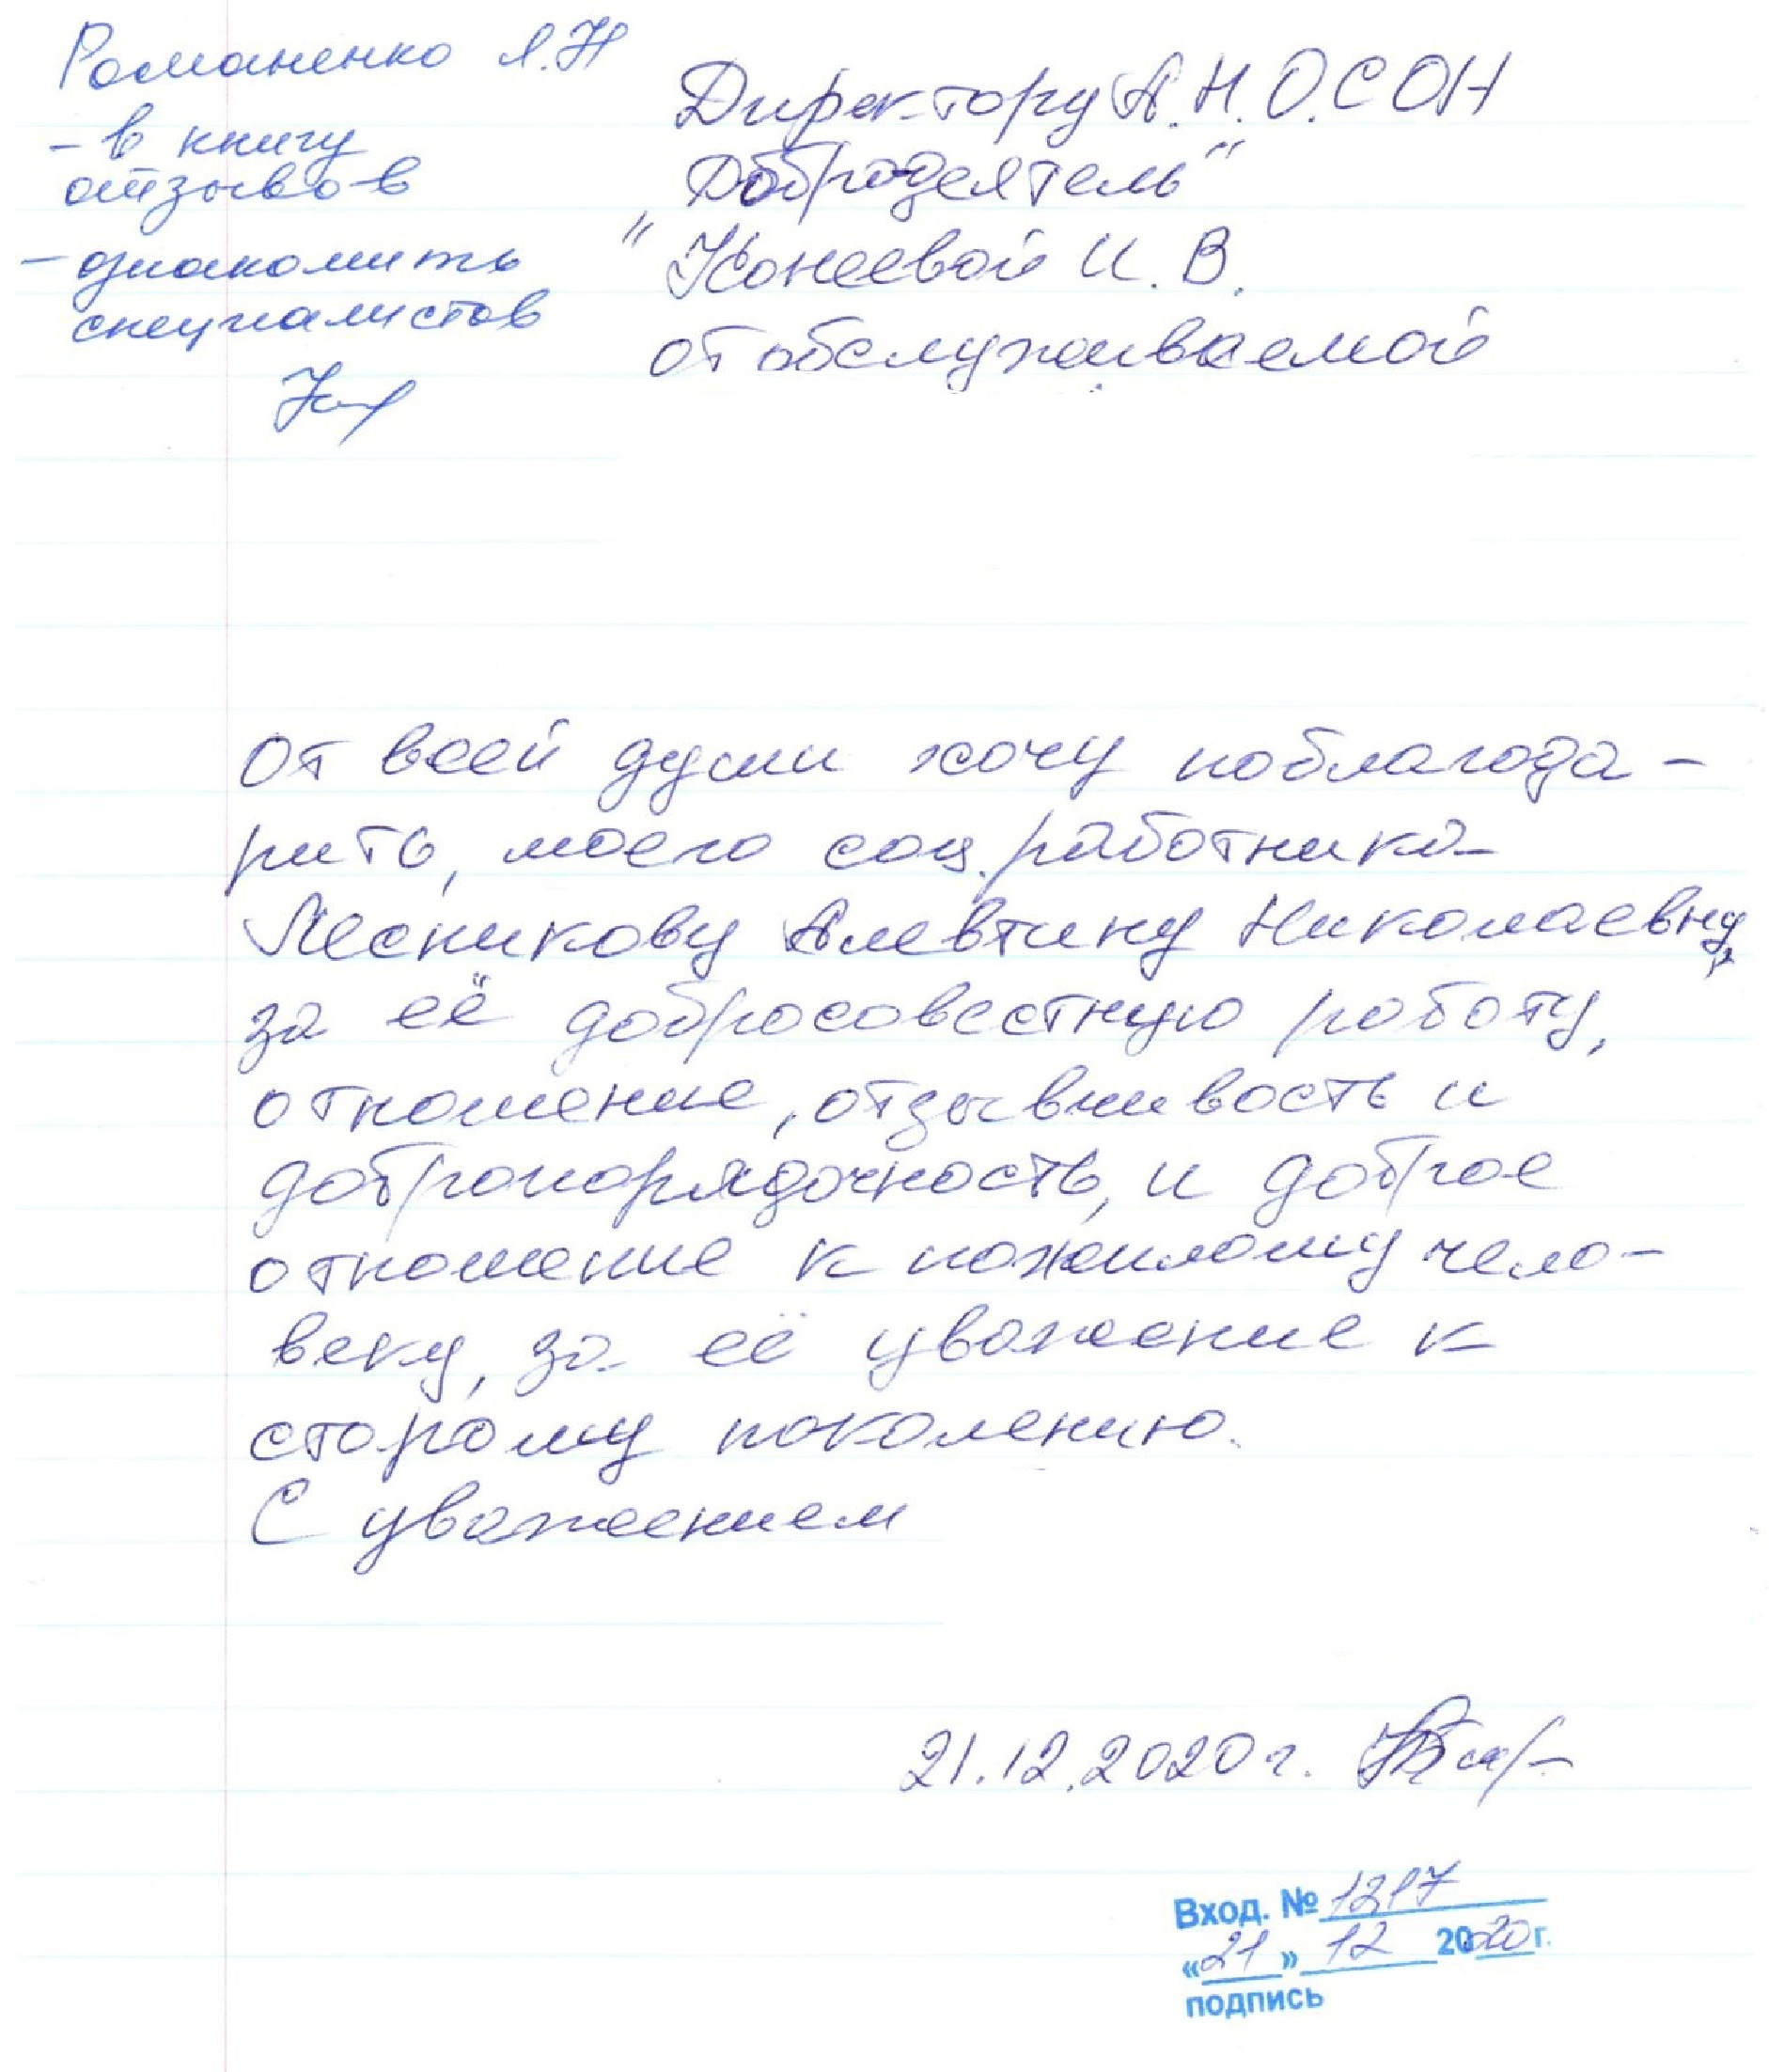 Романенко Л.Н
- в книгу
отзывов
- ознакомить
специалистов
Директору А.Н.О.СОН
Добродеятель"
" Конеевой И. В.
от обслуживаемой
От всей души хочу поблагода-
рить, моего соц. работника
Лесникову Алевтину Николаевну,
за её добросовестную работу,
отношение, отзывчивость и
добропорядочность, и доброе
отношение к пожилому чело-
веку, за её уважение к
старому поколению.
С уважением
21.12.2020 г.
Вход. № 1217
«21» 12 2020 г.
подпись